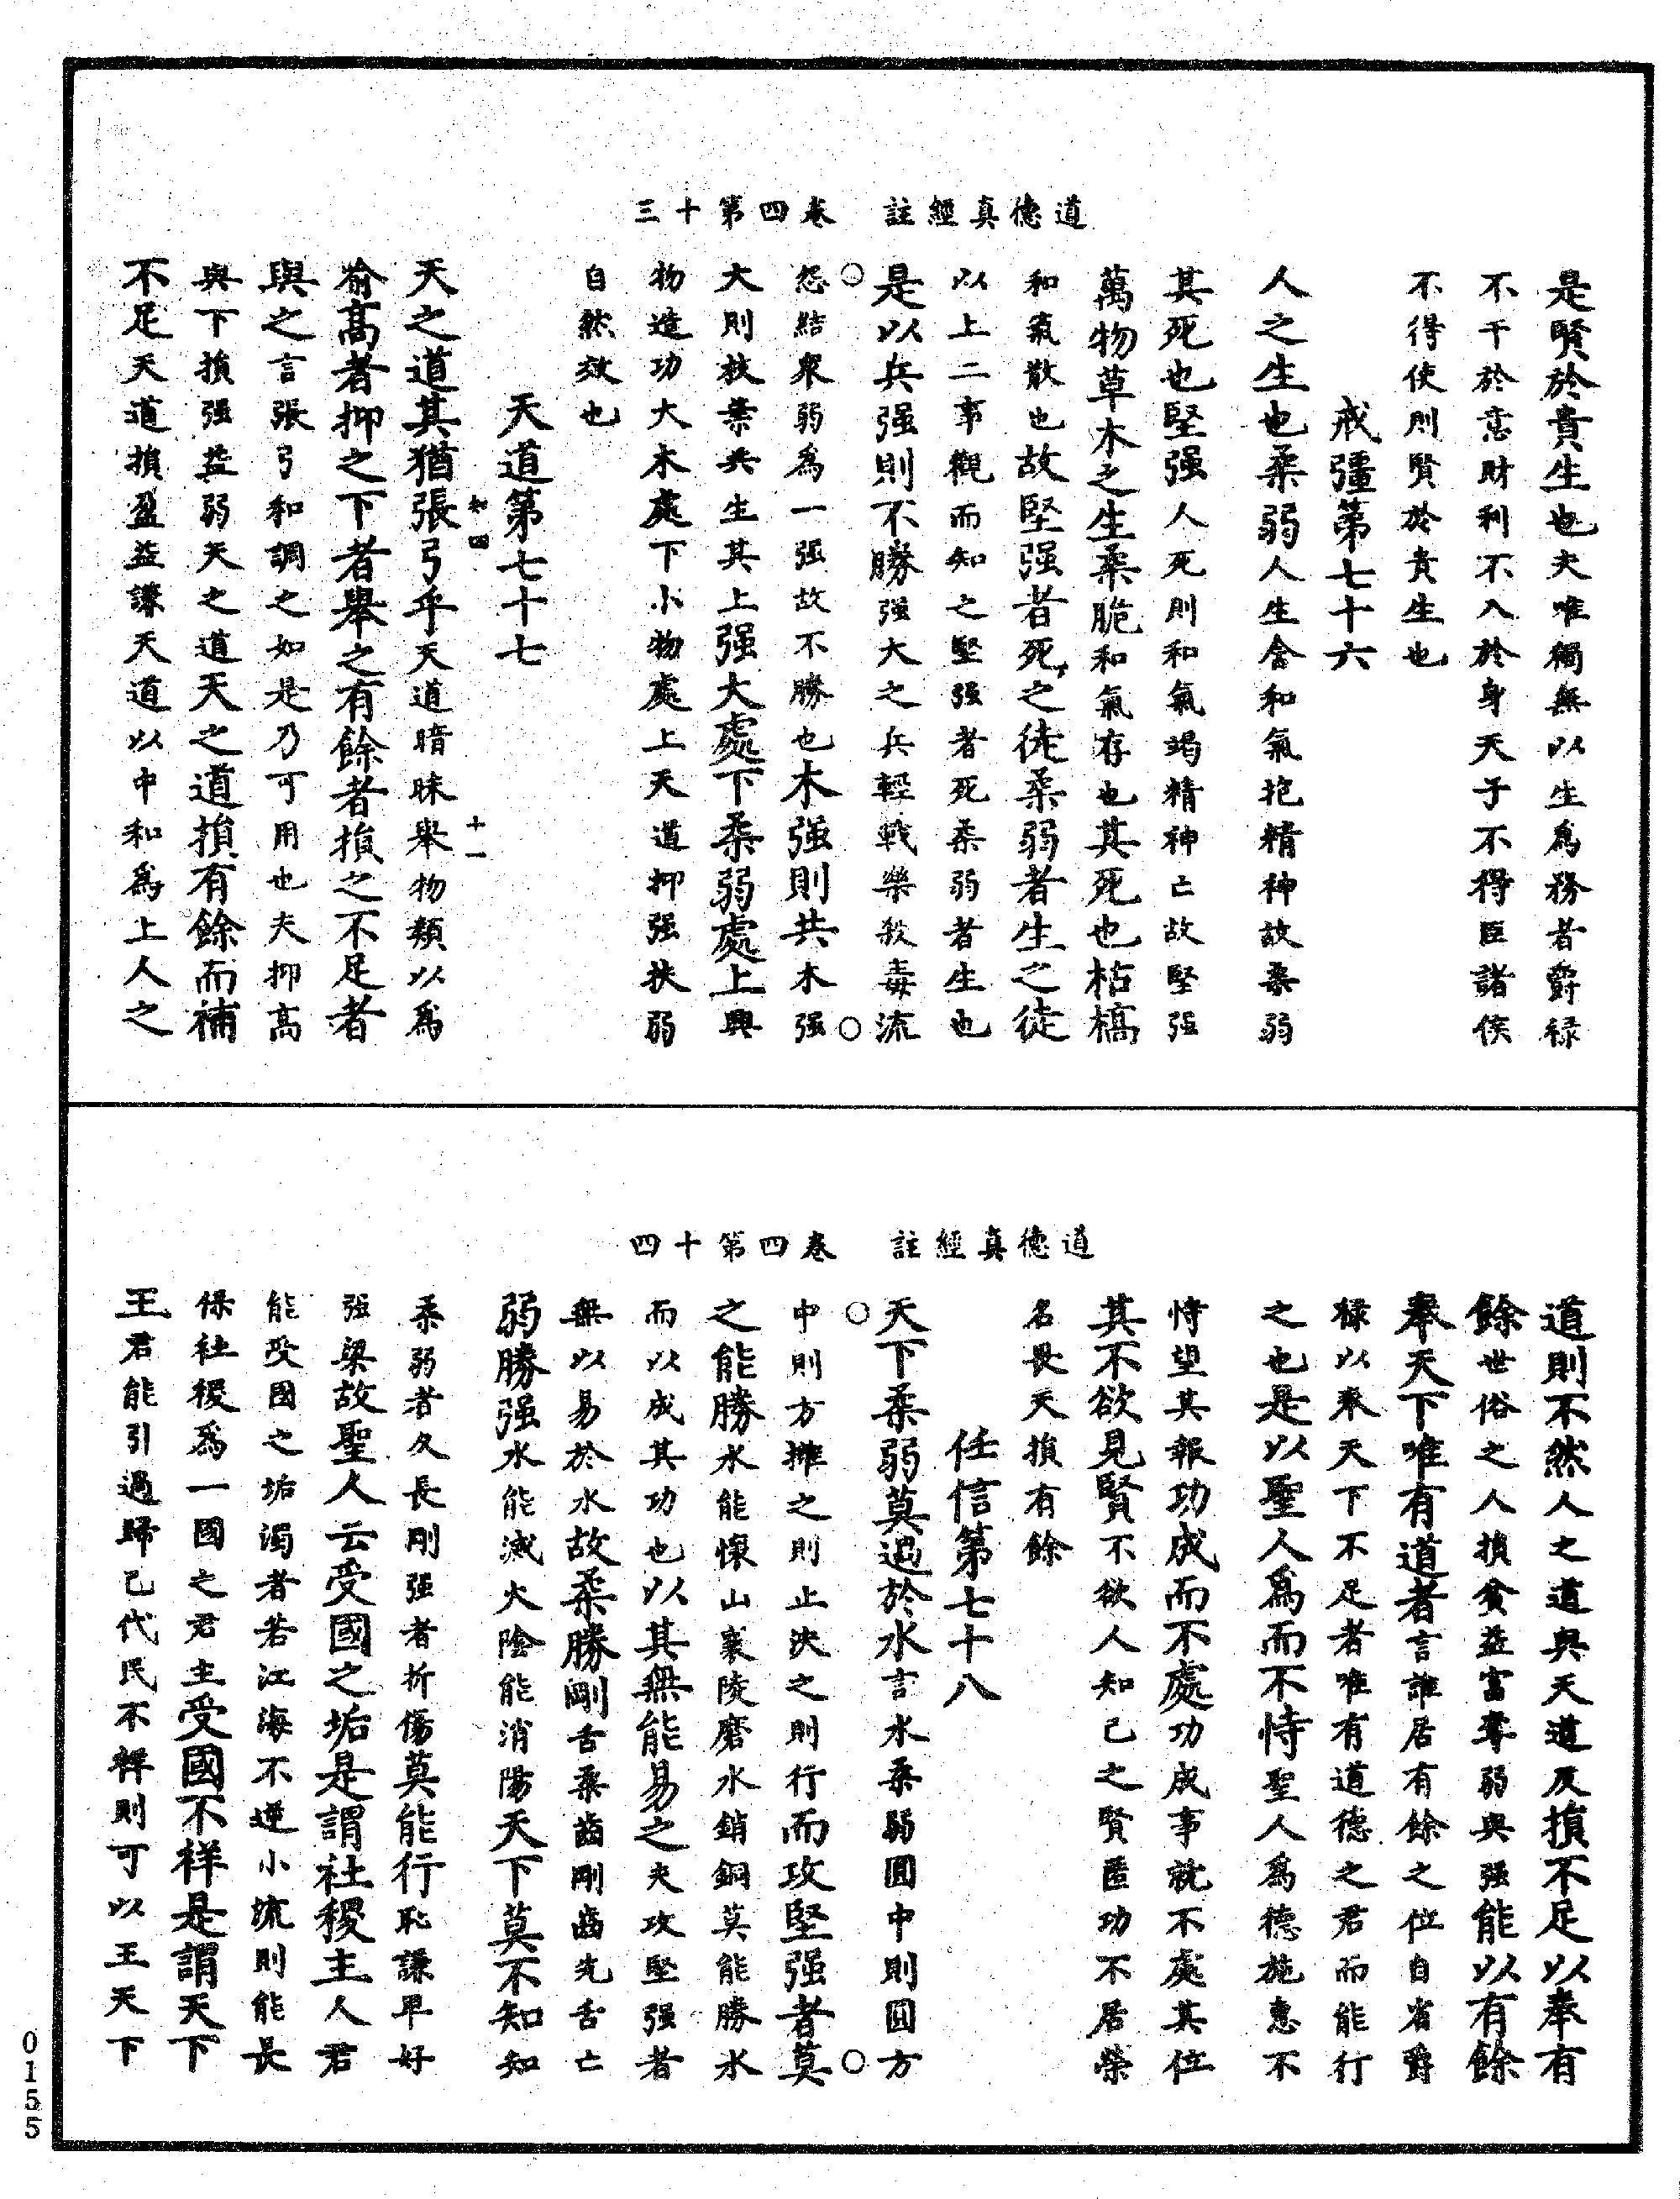 道德真經註 卷四第十三
是賢於貴生也夫唯獨無以生爲務者爵祿
不干於意財利不入於身天子不得臣諸侯
不得使則賢於貴生也
戒彊第七十六
人之生也柔弱人生含和氣抱精神故柔弱
其死也堅强人死則和氣竭精神亡故堅强
萬物草木之生柔脆和氣存也其死也枯槁
和氣散也故堅强者死之徒柔弱者生之徒
以上二事觀而知之堅强者死柔弱者生也
是以兵强則不勝强大之兵輕戰樂殺毒流
○怨結衆弱爲一强故不勝也木强則共木强○
大則枝葉共生其上强大處下柔弱處上興
物造功大木處下小物處上天道抑强扶弱
自然效也
天道第七十七
知四 十一
天之道其猶張弓乎天道暗昧舉物類以爲
喻高者抑之下者舉之有餘者損之不足者
與之言張弓和調之如是乃可用也夫抑高
與下損强益弱天之道天之道損有餘而補
不足天道損盈益謙天道以中和爲上人之
道德真經註 卷四第十四
道則不然人之道與天道反損不足以奉有
餘世俗之人損貧益富奪弱與强能以有餘
奉天下唯有道者言誰居有餘之位自省爵
祿以奉天下不足者唯有道德之君而能行
之也是以聖人爲而不恃聖人爲德施惠不
恃望其報功成而不處功成事就不處其位
其不欲見賢不欲人知己之賢匿功不居榮
名畏天損有餘
任信第七十八
天下柔弱莫過於水言水柔弱圓中則圓方
○中則方擁之則止決之則行而攻堅强者莫○
之能勝水能懷山襄陵磨水銷銅莫能勝水
而以成其功也以其無能易之夫攻堅强者
無以易於水故柔勝剛舌柔齒剛齒先舌亡
弱勝强水能滅火陰能消陽天下莫不知知
柔弱者久長剛强者折傷莫能行恥謙卑好
强梁故聖人云受國之垢是謂社稷主人君
能受國之垢濁者若江海不逆小流則能長
保社稷爲一國之君主受國不祥是謂天下
王君能引過歸己代民不祥則可以王天下
0155